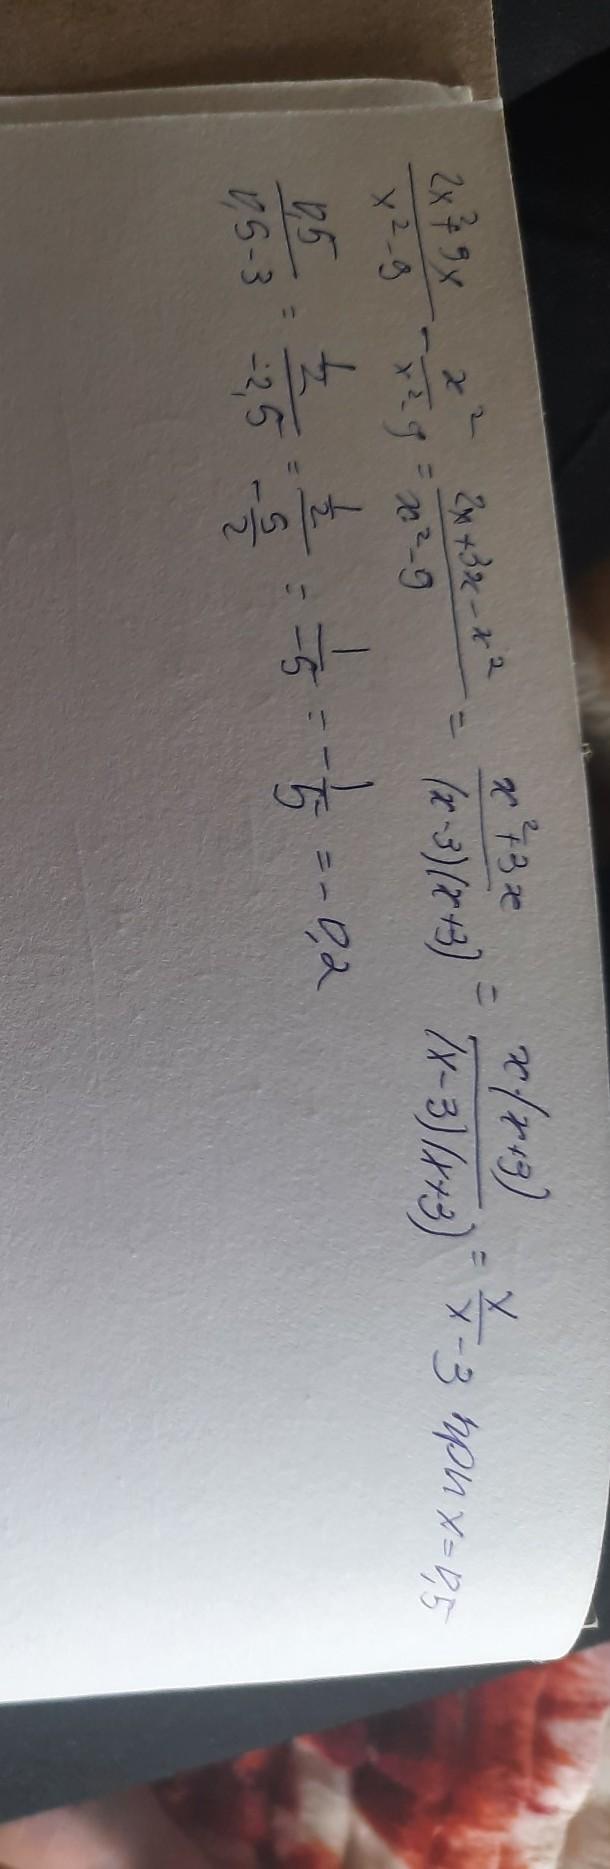 (2x²+9x)/(x²-9) - x²/(x²-9) = (2x+3x-x²)/(x²-9) = (x²+3x)/((x-3)(x+3)) = x·(x+3)/((x-3)(x+3)) = x/(x-3) при x=0,5
0,5/(0,5-3) = (1/2)/(-2,5) = (1/2)/(-5/2) = 1/(-5) = -1/5 = -0,2